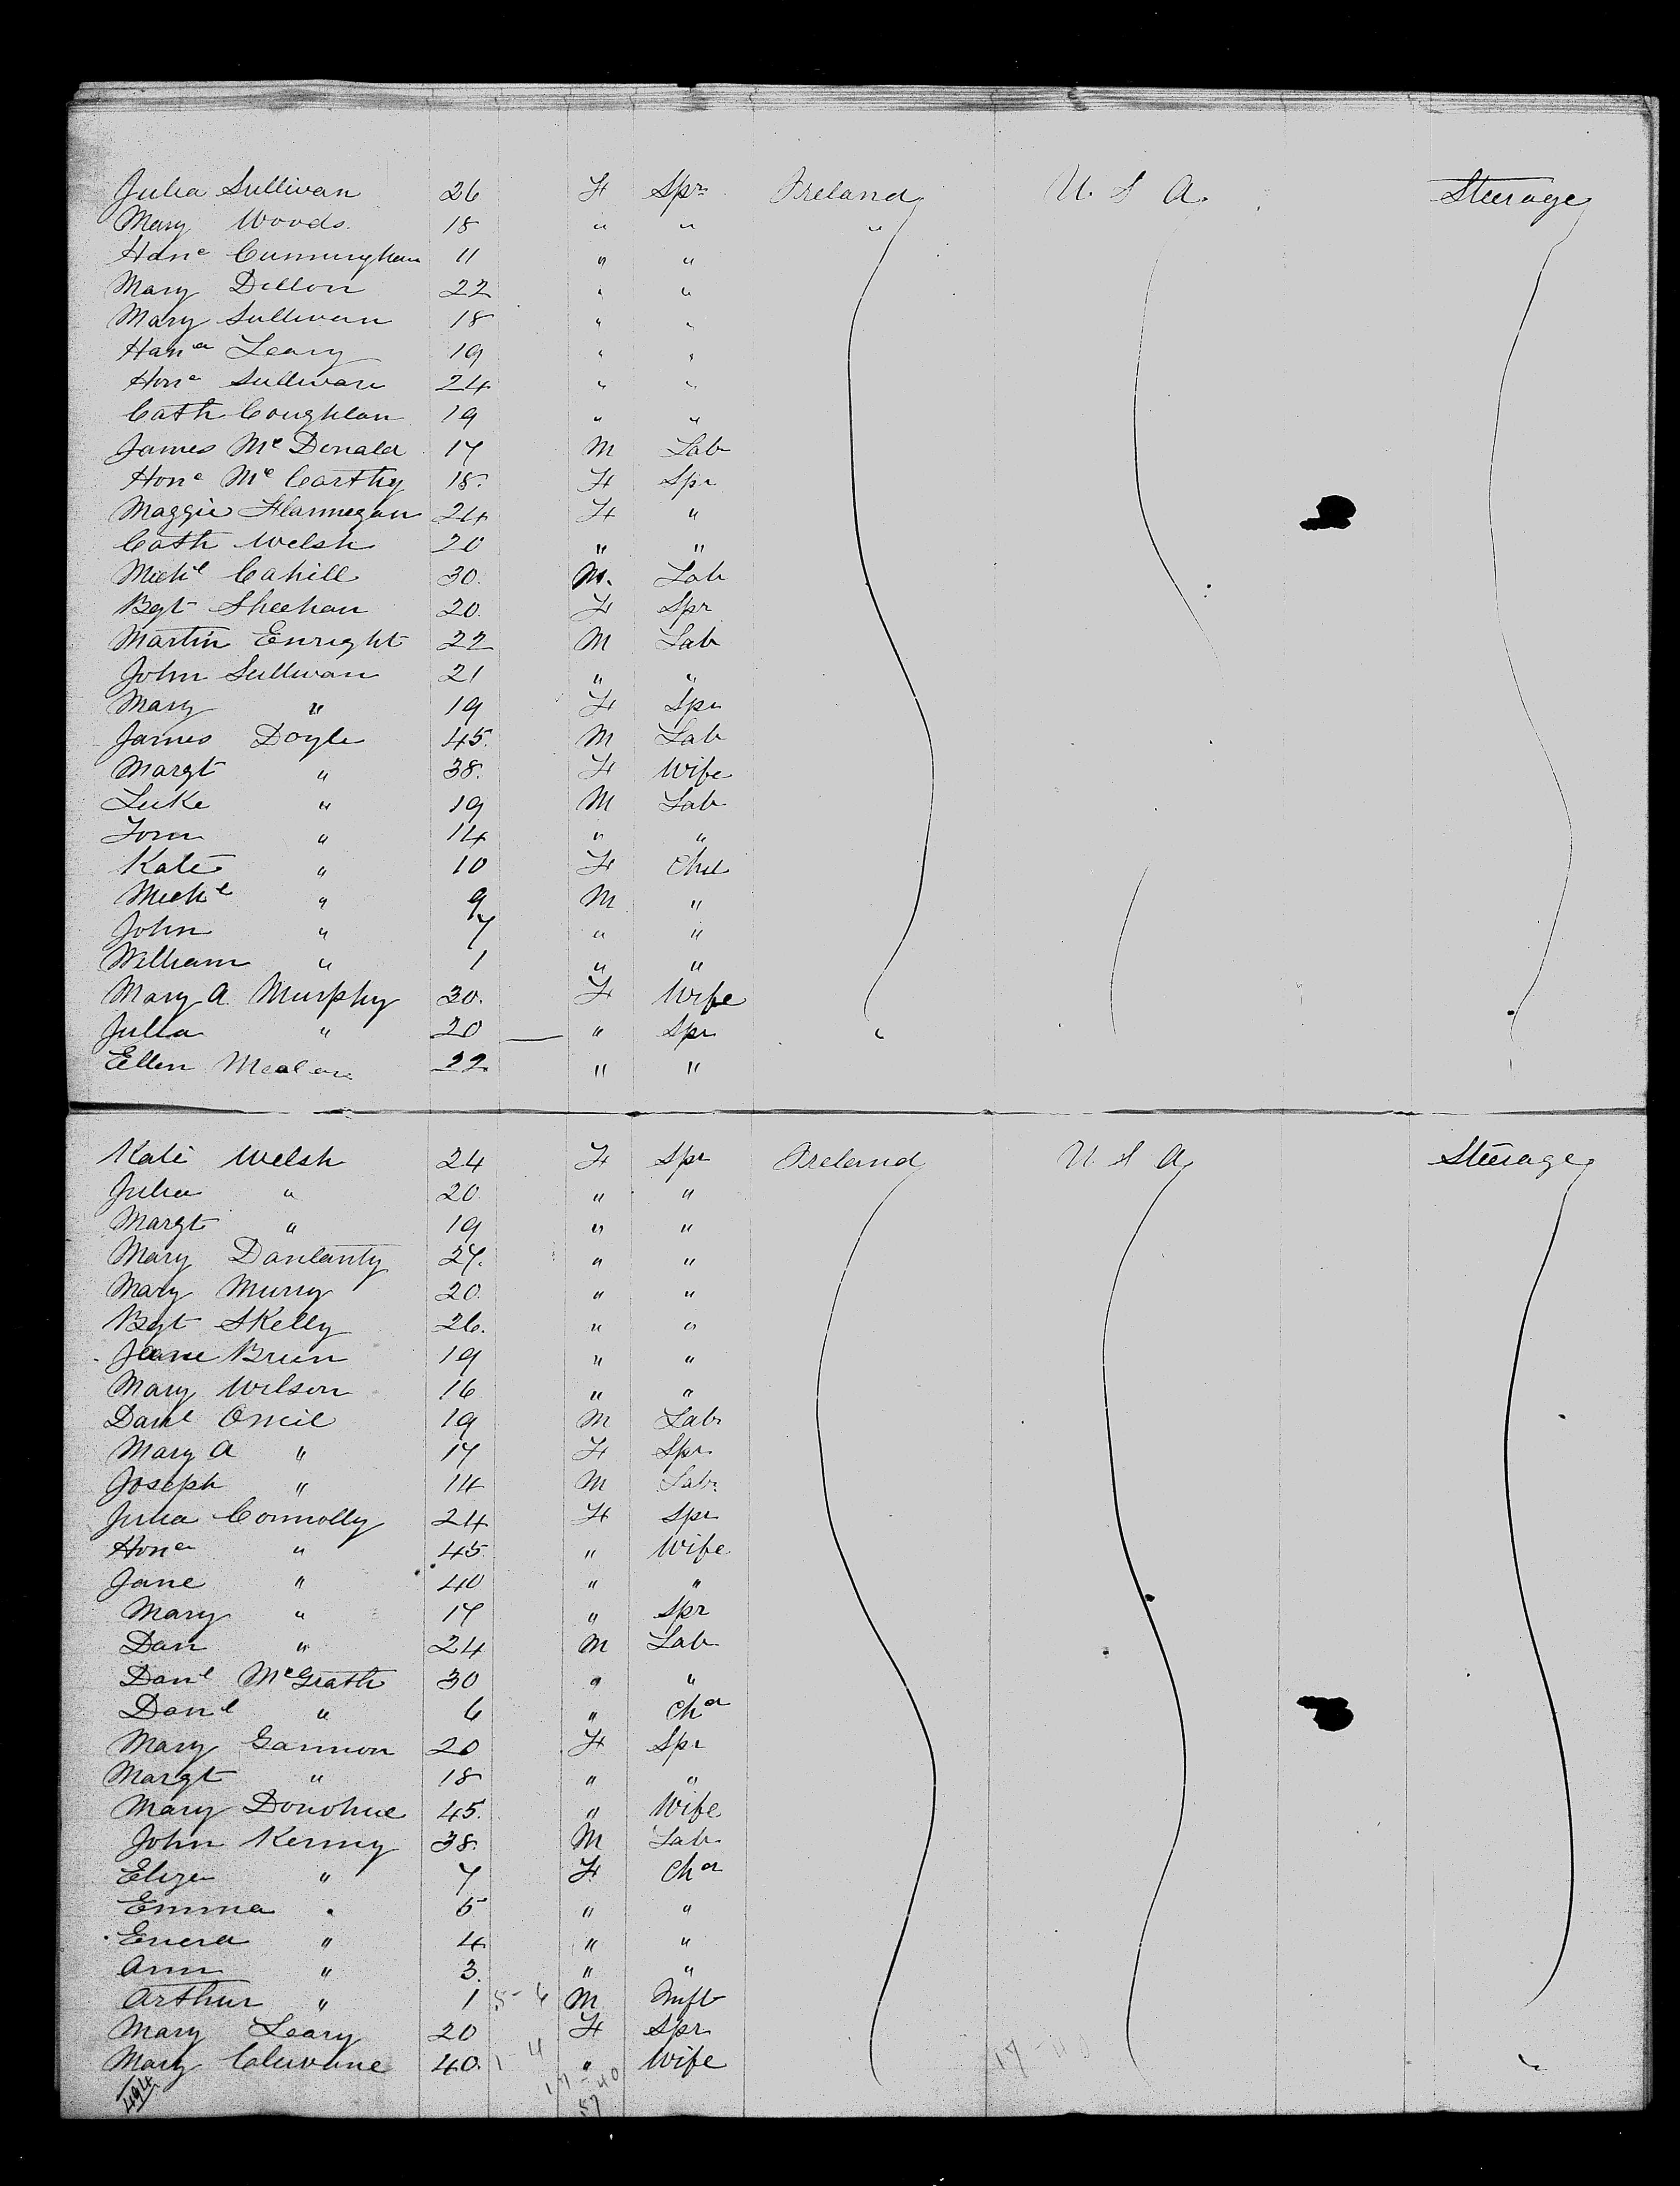 Julia Sullivan 26 F Spr Ireland U. S A. Steerage
Mary Woods. 18 " " "
Hanᵃ Cunningham 11 " "
Mary Dillon 22 " "
Mary Sullivan 18 " "
Hanᵃ Leary 19 " "
Honᵃ Sullivan 24 " "
Cath Coughlan 19 " "
James Mᶜ Donald 17 M Lab
Honᵃ Mᶜ Carthy 18. F Spr
Maggie Flannegan 24 F "
Cath Welsh 20 " "
Michˡ Cahill 30. M. Lab
Bgt Sheehan 20. F Spr
Martin Enright 22 M Lab
John Sullivan 21 " "
Mary " 19 F Spr
James Doyle 45. M Lab
Margt " 38. F Wife
Luke " 19 M Lab
Tom " 14 " "
Kate " 10 F Chd
Michˡ " 9 M "
John " 7 " "
William " 1 " "
Mary A. Murphy 30. F Wife
Julia " 20 — " Spr
Ellen 22 " "
Kate Welsh 24 F Spr Ireland U. S A. Steerage
Julia " 20. " "
Margt " 19 " "
Mary Danlanty 27. " "
Mary Murry 20. " "
Bgt Skelly 26. " "
Jane Brien 19 " "
Mary Wilson 16 " "
Danl Oneil 19 M Lab
Mary A " 17 F Spr
Joseph " 14 M Lab
Julia Connolly 24 F Spr
Honᵃ " 45 " Wife
Jane " 40 " "
Mary " 17 " Spr
Dan " 24 M Lab
Danˡ MᶜGrath 30 " "
Danˡ " 6 " Chᵈ
Mary Gannon 20 F Spr
Margt " 18 " "
Mary Donohue 45. " Wife
John Kenny 38. M Lab
Eliza " 7 F Chᵈ
Emma " 5 " "
" 4 " "
Ann " 3. " "
Arthur " 1 5-6 M Inft
Mary Leary 20 F Spr
Mary 40. 1-4 " Wife 17-40
494 17-40
57